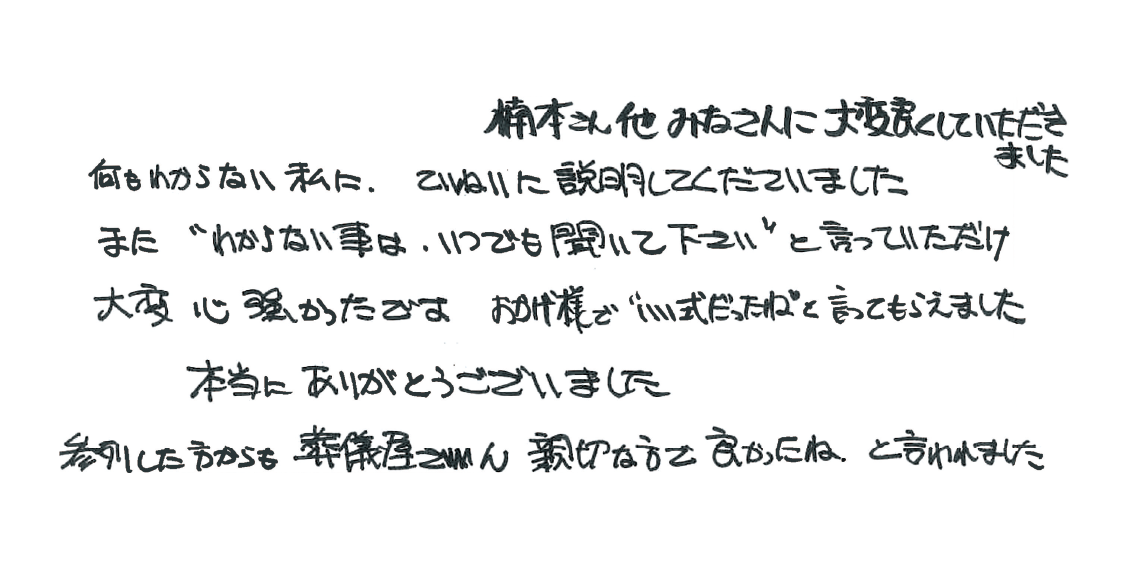 楠本さん他みなさんに大変良くしていただき
ました
何もわからない私に、ていねいに説明してくださいました
また“わからない事は、いつでも聞いて下さい”と言っていただけ
大変心強かったです おかげ様で“いい式だったね”と言ってもらえました
本当にありがとうございました
参列した方からも葬儀屋さん親切な方で良かったね、と言われました